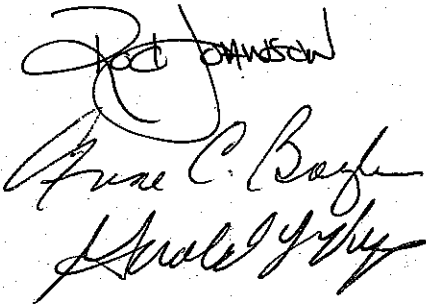 Rod Johnson
Anne C. Boyle
Gerald